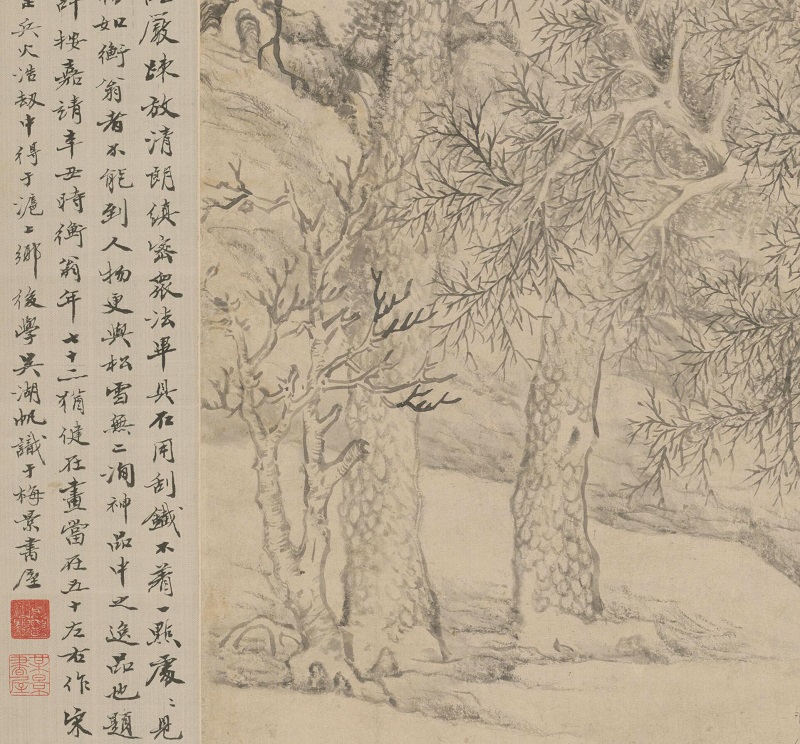 嚴疎放清朗縝密衆法畢具石用刮鐵不着一點處〻見
如衡翁者不能到人物更與松雪無二洵神品中之逸品也題
按嘉靖辛丑時衡翁年七十二猶健在畫當在五十左右作宋
兵火浩劫中得于滬上鄉後學吳湖帆識于梅景書屋
梅景書屋